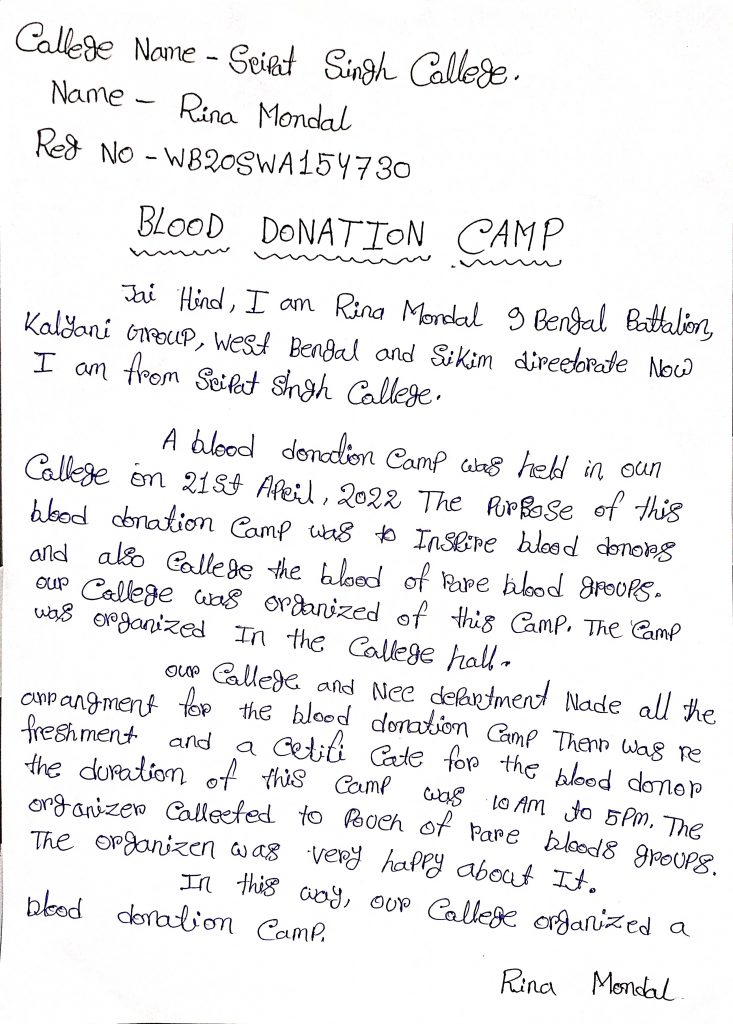 College Name - Sripat Singh College.
Name - Rina Mondal
Reg No - WB20SWA154730
BLOOD DONATION CAMP
Jai Hind, I am Rina Mondal 9 Bengal Battalion,
Kalyani Group, West Bengal and Sikim directorate Now
I am from Sripat Singh College.
A blood donation Camp was held in our
College on 21st April, 2022 The Purpose of this
blood donation Camp was to Inspire blood donors
and also College the blood of rare blood groups.
our College was organized of this Camp. The Camp
was organized In the College hall.
our College and Ncc department Nade all the
arrangment for the blood donation Camp Therr was re
freshment and a Cetifi Cate for the blood donor
the duration of this Camp was 10 Am to 5 Pm. The
organizer Callected to Pouch of rare bloods groups.
The organizer was very happy about It.
In this way, our College organized a
blood donation Camp.
Rina Mondal